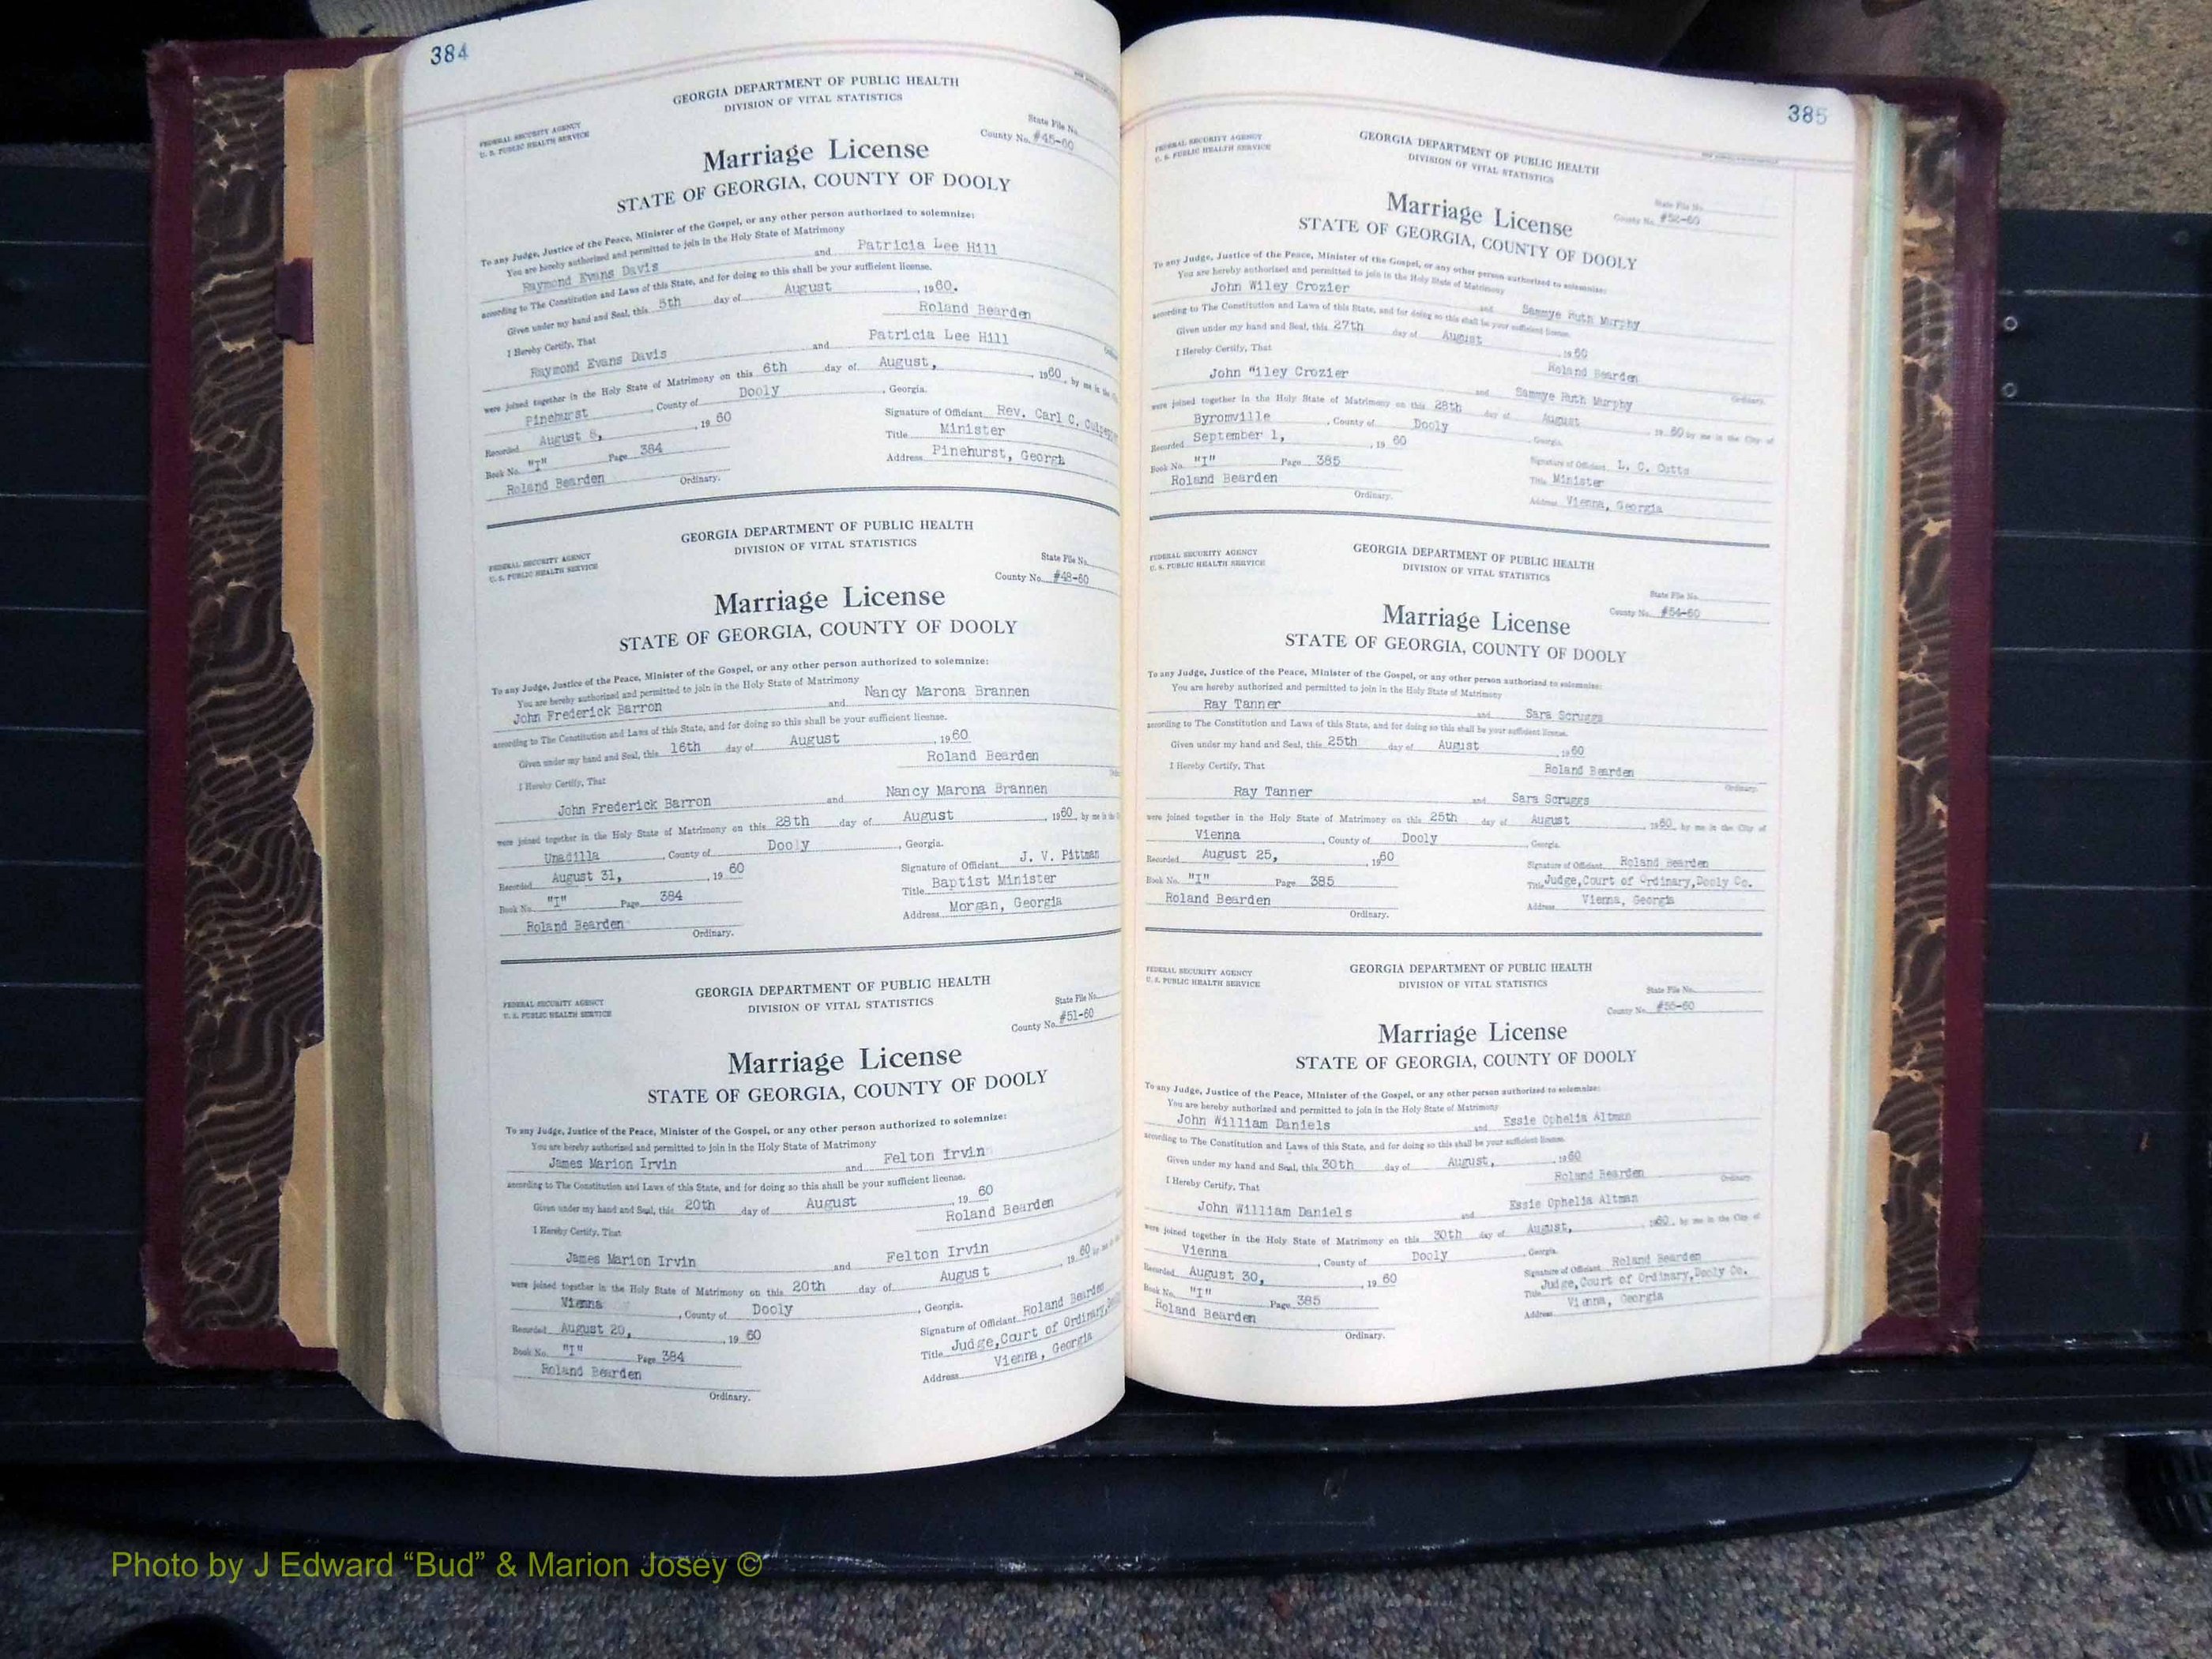 384
GEORGIA DEPARTMENT OF PUBLIC HEALTH
DIVISION OF VITAL STATISTICS
FEDERAL SECURITY AGENCY
U. S. PUBLIC HEALTH SERVICE
State File No.
County No. #45-60
Marriage License
STATE OF GEORGIA, COUNTY OF DOOLY
To any Judge, Justice of the Peace, Minister of the Gospel, or any other person authorized to solemnize:
You are hereby authorized and permitted to join in the Holy State of Matrimony
Raymond Evans Davis and Patricia Lee Hill
according to The Constitution and Laws of this State, and for doing so this shall be your sufficient license.
Given under my hand and Seal, this 5th day of August , 1960.
Roland Bearden
I Hereby Certify, That
Raymond Evans Davis and Patricia Lee Hill
were joined together in the Holy State of Matrimony on this 6th day of August, , 1960, by me in the
Pinehurst , County of Dooly , Georgia.
Recorded August 8, , 19 60
Signature of Officiant Rev. Carl C.
Book No. "I" Page 384
Title Minister
Roland Bearden
Address Pinehurst, Georgh
Ordinary.
GEORGIA DEPARTMENT OF PUBLIC HEALTH
DIVISION OF VITAL STATISTICS
FEDERAL SECURITY AGENCY
U. S. PUBLIC HEALTH SERVICE
State File No.
County No. #48-60
Marriage License
STATE OF GEORGIA, COUNTY OF DOOLY
To any Judge, Justice of the Peace, Minister of the Gospel, or any other person authorized to solemnize:
You are hereby authorized and permitted to join in the Holy State of Matrimony
John Frederick Barron and Nancy Marona Brannen
according to The Constitution and Laws of this State, and for doing so this shall be your sufficient license.
Given under my hand and Seal, this 16th day of August , 1960
Roland Bearden
I Hereby Certify, That
John Frederick Barron and Nancy Marona Brannen
were joined together in the Holy State of Matrimony on this 28th day of August , 1960, by me in the
Unadilla , County of Dooly , Georgia.
Recorded August 31, , 19 60
Signature of Officiant J. V. Pittman
Book No. "I" Page 384
Title Baptist Minister
Roland Bearden
Address Morgan, Georgia
Ordinary.
GEORGIA DEPARTMENT OF PUBLIC HEALTH
DIVISION OF VITAL STATISTICS
FEDERAL SECURITY AGENCY
U. S. PUBLIC HEALTH SERVICE
State File No.
County No. #51-60
Marriage License
STATE OF GEORGIA, COUNTY OF DOOLY
To any Judge, Justice of the Peace, Minister of the Gospel, or any other person authorized to solemnize:
You are hereby authorized and permitted to join in the Holy State of Matrimony
James Marion Irvin and Felton Irvin
according to The Constitution and Laws of this State, and for doing so this shall be your sufficient license.
Given under my hand and Seal, this 20th day of August , 19 60
Roland Bearden
I Hereby Certify, That
James Marion Irvin and Felton Irvin
were joined together in the Holy State of Matrimony on this 20th day of August , 19 60 by me in the
Vienna , County of Dooly , Georgia.
Recorded August 20, , 19 60
Signature of Officiant Roland Bearden
Book No. "I" Page 384
Title Judge,Court of Ordinary,
Roland Bearden
Address Vienna, Georgia
Ordinary.
385
GEORGIA DEPARTMENT OF PUBLIC HEALTH
DIVISION OF VITAL STATISTICS
FEDERAL SECURITY AGENCY
U. S. PUBLIC HEALTH SERVICE
State File No.
County No. #52-60
Marriage License
STATE OF GEORGIA, COUNTY OF DOOLY
To any Judge, Justice of the Peace, Minister of the Gospel, or any other person authorized to solemnize:
You are hereby authorized and permitted to join in the Holy State of Matrimony
John Wiley Crozier and Sammye Ruth Murphy
according to The Constitution and Laws of this State, and for doing so this shall be your sufficient license.
Given under my hand and Seal, this 27th day of August , 19 60
Roland Bearden
Ordinary.
I Hereby Certify, That
John "iley Crozier and Sammye Ruth Murphy
were joined together in the Holy State of Matrimony on this 28th day of August , 19 60 by me in the City of
Byromville , County of Dooly , Georgia.
Recorded September 1, , 19 60
Signature of Officiant L. C. Cutts
Book No. "I" Page 385
Title Minister
Roland Bearden
Address Vienna, Georgia
Ordinary.
GEORGIA DEPARTMENT OF PUBLIC HEALTH
DIVISION OF VITAL STATISTICS
FEDERAL SECURITY AGENCY
U. S. PUBLIC HEALTH SERVICE
State File No.
County No. #54-60
Marriage License
STATE OF GEORGIA, COUNTY OF DOOLY
To any Judge, Justice of the Peace, Minister of the Gospel, or any other person authorized to solemnize:
You are hereby authorized and permitted to join in the Holy State of Matrimony
Ray Tanner and Sara Scruggs
according to The Constitution and Laws of this State, and for doing so this shall be your sufficient license.
Given under my hand and Seal, this 25th day of August , 1960
Roland Bearden
Ordinary.
I Hereby Certify, That
Ray Tanner and Sara Scruggs
were joined together in the Holy State of Matrimony on this 25th day of August , 1960, by me in the City of
Vienna , County of Dooly , Georgia.
Recorded August 25, , 1960
Signature of Officiant Roland Bearden
Book No. "I" Page 385
Title Judge,Court of Ordinary,Dooly Co.
Roland Bearden
Address Vienna, Georgia
Ordinary.
GEORGIA DEPARTMENT OF PUBLIC HEALTH
DIVISION OF VITAL STATISTICS
FEDERAL SECURITY AGENCY
U. S. PUBLIC HEALTH SERVICE
State File No.
County No. #55-60
Marriage License
STATE OF GEORGIA, COUNTY OF DOOLY
To any Judge, Justice of the Peace, Minister of the Gospel, or any other person authorized to solemnize:
You are hereby authorized and permitted to join in the Holy State of Matrimony
John William Daniels and Essie Ophelia Altman
according to The Constitution and Laws of this State, and for doing so this shall be your sufficient license.
Given under my hand and Seal, this 30th day of August, , 1960
Roland Bearden
Ordinary.
I Hereby Certify, That
John William Daniels and Essie Ophelia Altman
were joined together in the Holy State of Matrimony on this 30th day of August, , 1960, by me in the City of
Vienna , County of Dooly , Georgia.
Recorded August 30, , 19 60
Signature of Officiant Roland Bearden
Book No. "I" Page 385
Title Judge,Court of Ordinary,Dooly Co.
Roland Bearden
Address Vienna, Georgia
Ordinary.
Photo by J Edward “Bud” & Marion Josey ©